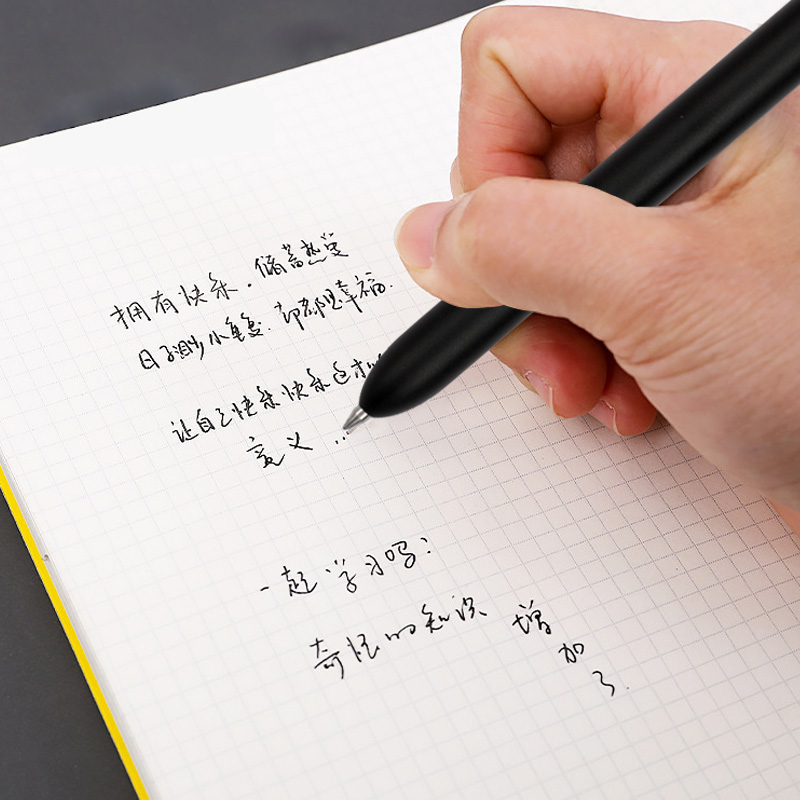 拥有快乐.储蓄热爱
日子渺小重复.却都是幸福.
让自己快乐快乐这才
意义...
一起学习吗:
奇怪的知识增
加
了.